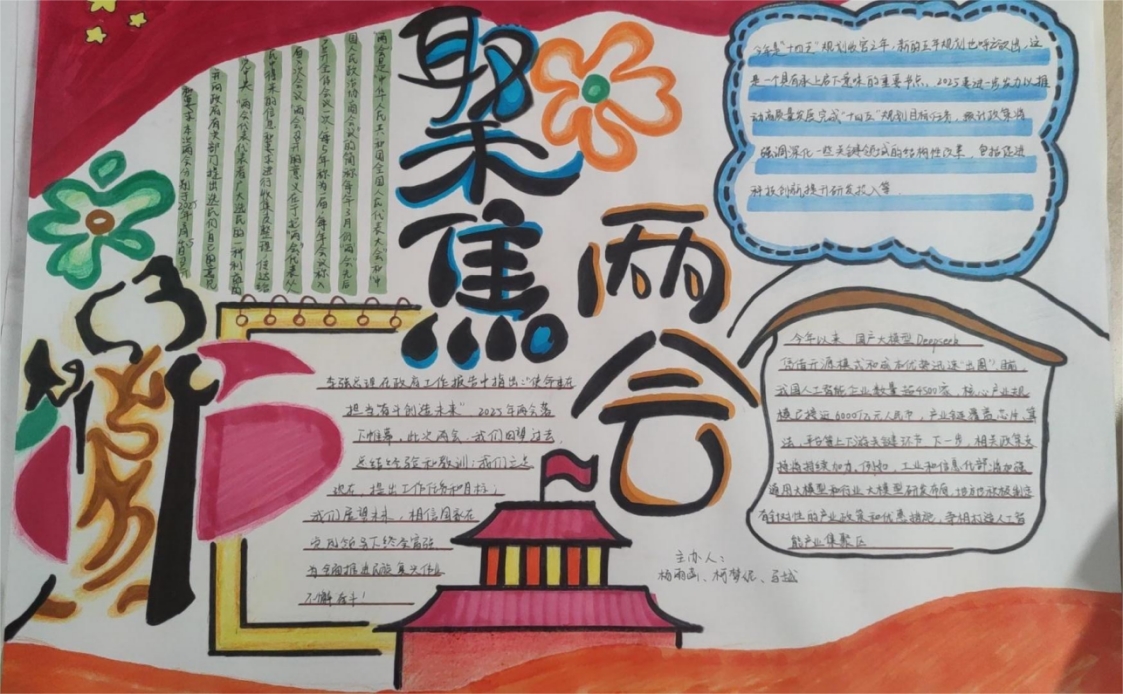 聚焦
两会
两会是"中华人民共和国全国人民代表大会和中
国人民政治协商会议"的简称每年3月份两会先后
召开全体会议一次每5年称为一届每年会议称
次会议"两会召开的意义在于将"两会"代表从
民中得来的信息和要求进行收集及整理传达给
中央"两会代表代表着广大选民的一种利益的
政府有关部门提出选民们自己的意见
和要求
今年是"十四五"规划收官之年,新的五年规划也呼之欲出,这
是一个具有承上启下意味的重要节点。2025要进一步发力以推
动高质量发展完成"十四五"规划目标任务,预计政策将
强调深化一些关键领域的结构性改革,包括促进
科技创新提升研发投入等
李强总理在政府工作报告中指出:"使命重在
担当奋斗创造未来"。2025年两会落
下帷幕,此次两会,我们回望过去,
总结经验和教训:我们立足
现在,提出工作任务和目标;
我们展望未来,相信国家在
党的领导下终会富强
为全面推进民族复兴伟业
不懈奋斗!
今年以来 国产大模型Deepseek
凭借开源模式和成本优势迅速"出圈"目前
我国人工智能企业数量超4500家,核心产业规
模已接近6000亿元人民币,产业链覆盖芯片、算
法,平台等上下游关键环节 下一步,相关政策支
持将持续加力。例如,工业和信息化部将加强
通用大模型和行业大模型研发布局,地方也积极制定
有针对性的产业政策和优惠措施,争相打造人工智
能产业集聚区
主办人:
杨雨函、柯梦妮、